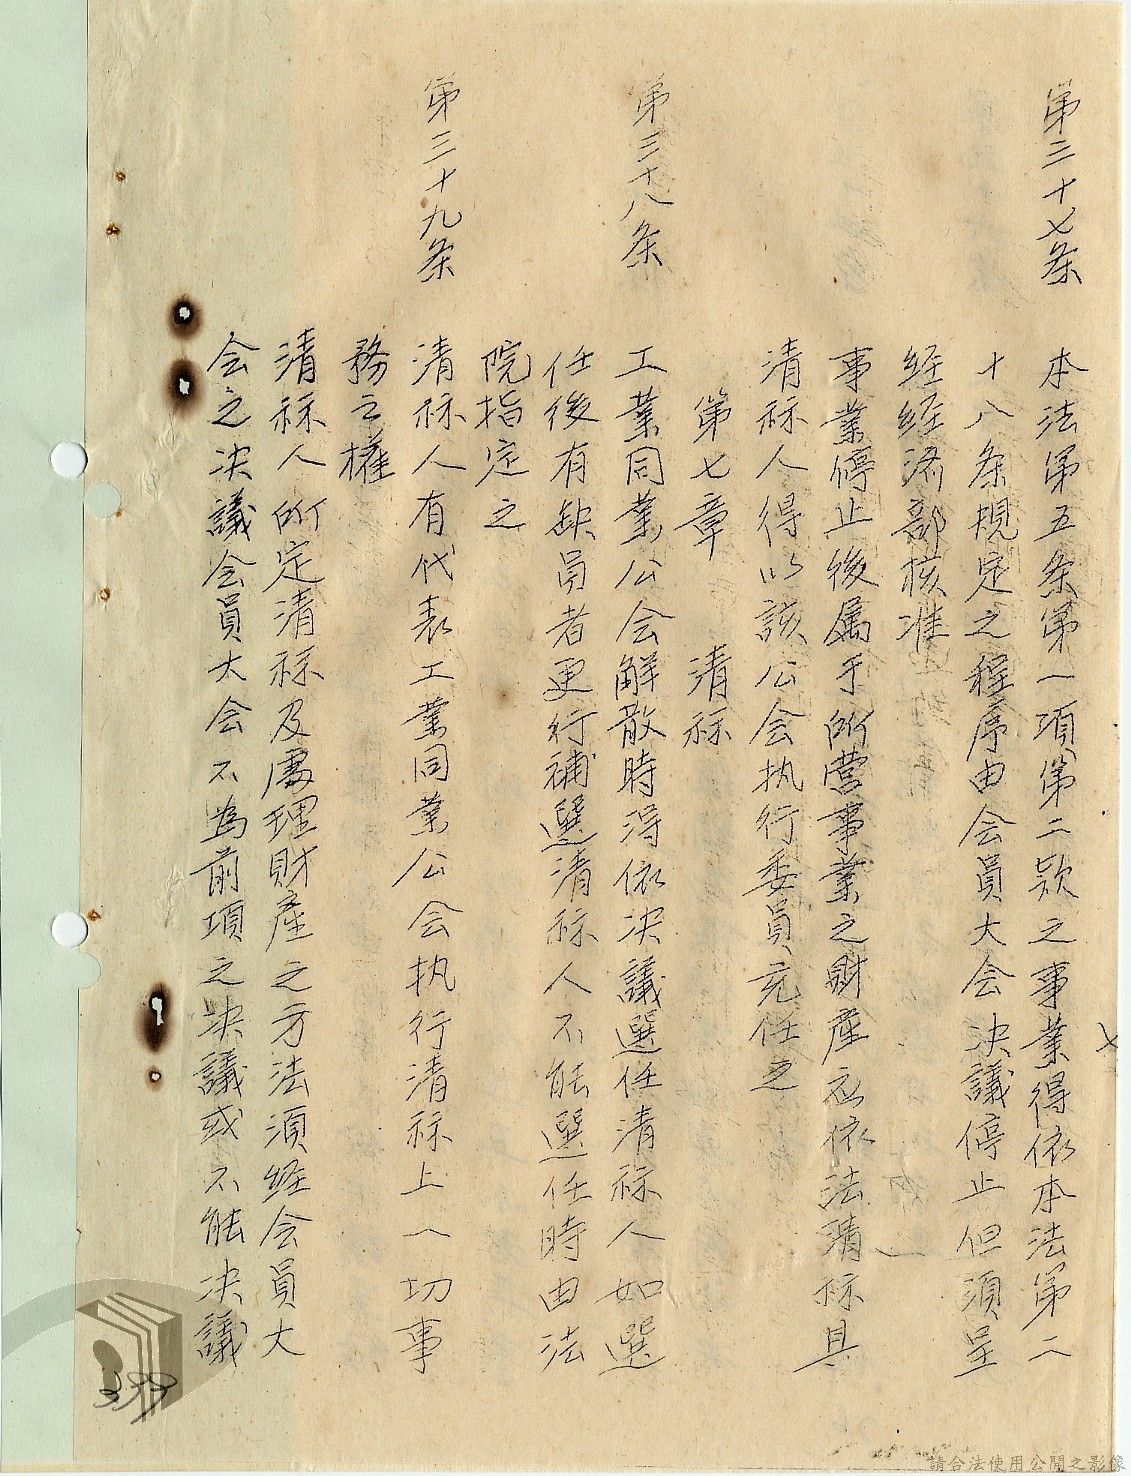 第三十七条
本法第五条第一項第二款之事業得依本法第二
十八条規定之程序由会員大会决議停止但須呈
经经済部核准
事業停止後属于所营事業之財產应依法清祘其
清祘人得以該公会执行委員充任之
第七章 清祘
第三十八条
工業同業公会解散時得依决議選任清祘人如選
任後有缺員者更行補選清祘人不能選任時由法
院指定之
第三十九条
清祘人有代表工業同業公会执行清祘上一切事
務之權
清祘人所定清祘及處理財產之方法須经会員大
会之决議会員大会不為前項之决議或不能决議
377
請合法使用公開之影像